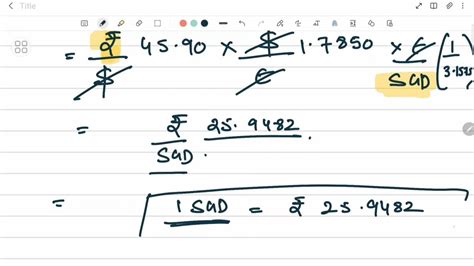 Title
= ₹/$ 45.90 × $/€ 1.7850 × €/SGD (1/3.1525
= ₹/SGD 25.9482.
= 1 SGD = ₹ 25.9482